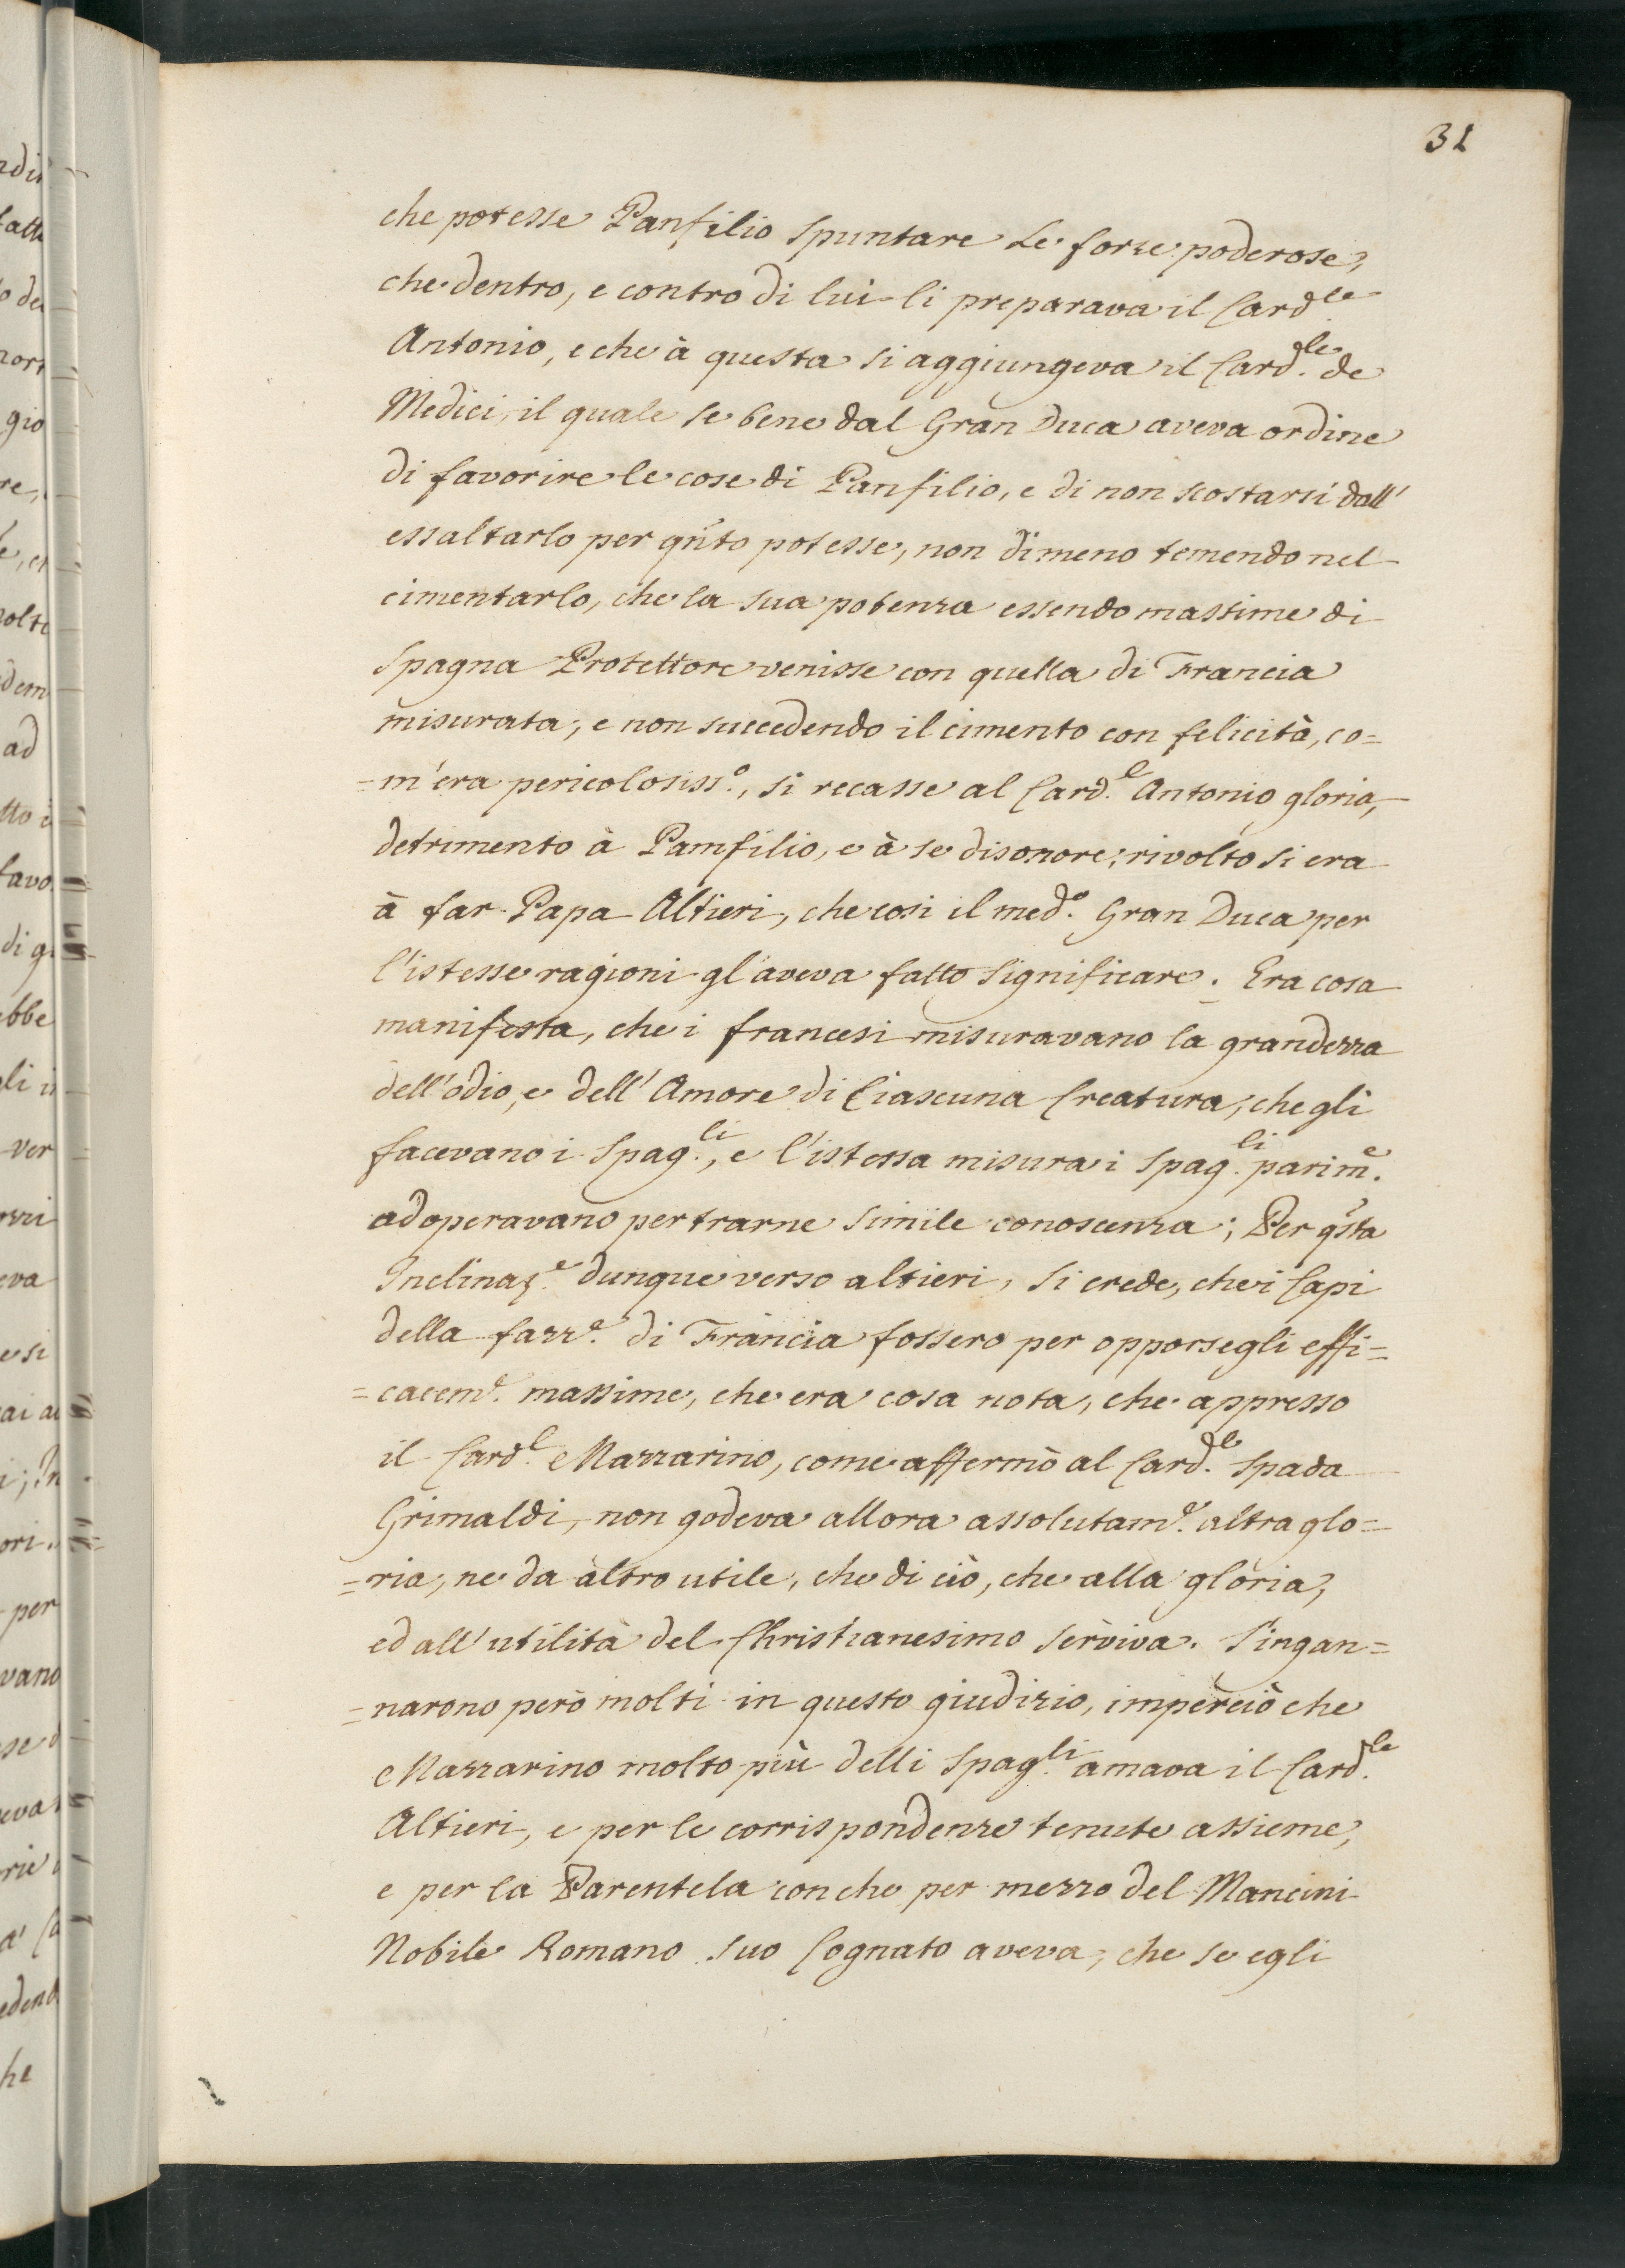 31
che potesse Panfilio spuntare Le forze poderose,
che dentro, e contro di lui li preparava il Card.le
Antonio, e che à questa si aggiungeva il Card.le de
Medici, il quale se bene dal Gran Duca aveva ordine
di favorire le cose di Panfilio, e di non scostarsi dall'
essaltarlo per qñto potesse, non dimeno temendo nel
cimentarlo, che la sua potenza essendo massime di
Spagna Protettore venisse con quella di Francia
misurata, e non succedendo il cimento con felicità, co=
=m'era pericolosiss.o, si recasse al Card.e Antonio gloria,
detrimento à Pamfilio, e à se disonore; rivolto si era
à far Papa Altieri, che cosi il med.o Gran Duca per
l'istesse ragioni gl'aveva fatto significare. Era cosa
manifesta, che i francesi misuravano la grandezza
dell'odio, e dell'Amore di Ciascuna Creatura, che gli
facevano i Spag.li, e l'istessa misura i Spag.li parim.e
adoperavano per trarne simile conoscenza; Per qsta
Inclinaz.e dunque verso altieri, si crede, che i Capi
della fazz.e di Francia fossero per opporsegli effi=
=cacem.e massime, che era cosa nota, che appresso
il Card.l Mazzarino, come affermò al Card.le Spada
Grimaldi, non godeva allora assolutam.e altra glo=
=ria, ne da altro utile, che di ciò, che alla gloria,
ed all'utilità del Christianesimo serviva. S'ingan=
=narono però molti in questo giudizio, imperciò che
Mazzarino molto più delli Spag.li amava il Card.le
Altieri, e per le corrispondenze tenute assieme,
e per la Parentela con che per mezzo del Mancini
Nobile Romano suo Cognato aveva, che se egli